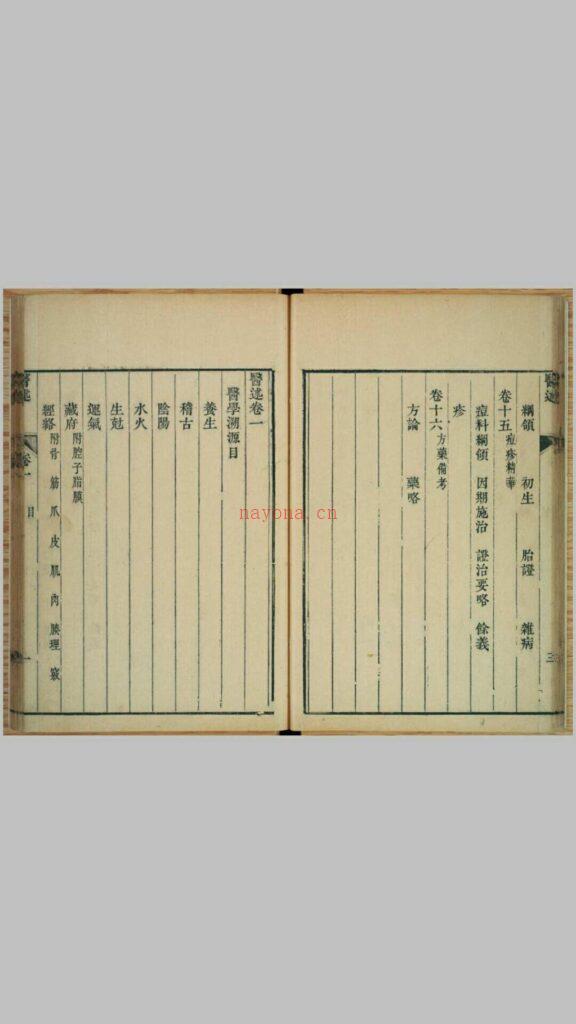 醫述
三
綱領 初生 胎證 雜病
卷十五 痘疹精華
痘科綱領 因期施治 證治要略 餘義
疹
卷十六 方藥備考
方論 藥略
醫述卷一
醫學溯源目
養生
稽古
陰陽
水火
生尅
運氣
藏府 附腔子脂膜
經絡 附骨 筋 爪 皮 肌 肉 腠理 竅
醫述 卷一 目 一
nayona.cn